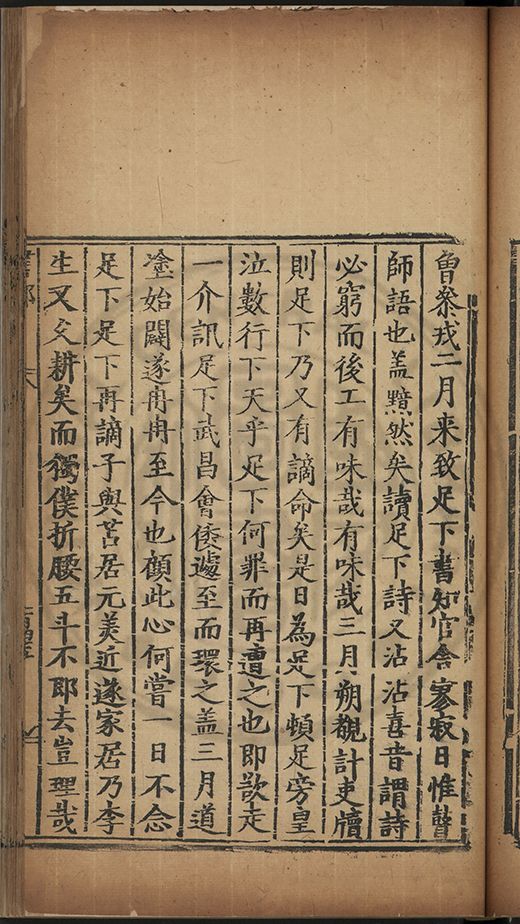 魯叅戎二月来致足下書知官舎寥寂日惟瞽
師語也盖黯然矣讀足下詩又沾沾喜昔謂詩
必窮而後工有味哉有味哉三月朔覩計吏牘
則足下乃又有謫命矣是日為足下頓足旁皇
泣數行下天乎足下何罪而再遭之也即欲走
一介訊足下武昌會倭遽至而環之盖三月道
塗始闢遂冉冉至今也顧此心何嘗一日不念
足下足下再謫子與苫居元美近遂家居乃李
生又乆耕矣而獨僕折腰五斗不即去豈理哉